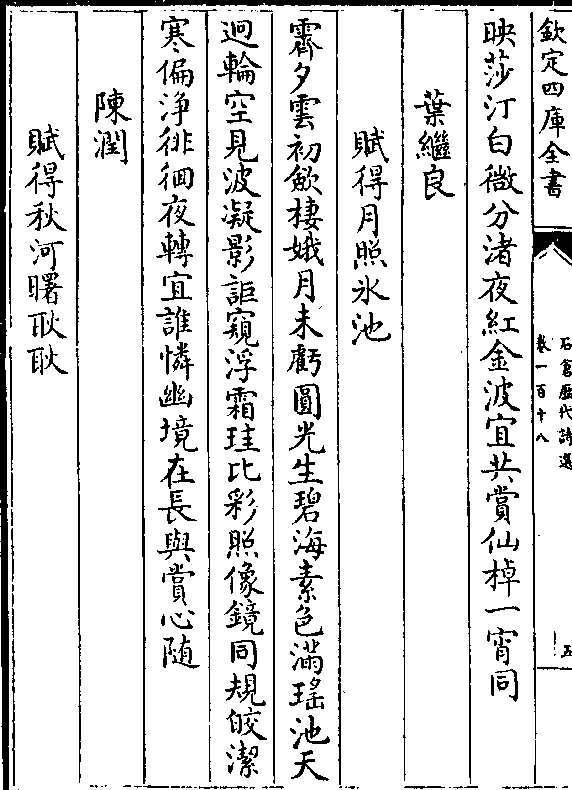 欽定四庫全書
石倉歷代詩選
卷一百十八
五
映莎汀白微分渚夜紅金波宜共賞仙棹一宵同
葉繼良
賦得月照氷池
霽夕雲初歛棲娥月未虧圓光生碧海素色滿瑤池天
迥輪空見波凝影詎窺浮霜珪比彩照像鏡同規皎潔
寒偏浄徘徊夜轉宜誰憐幽境在長與賞心随
陳潤
賦得秋河曙耿耿